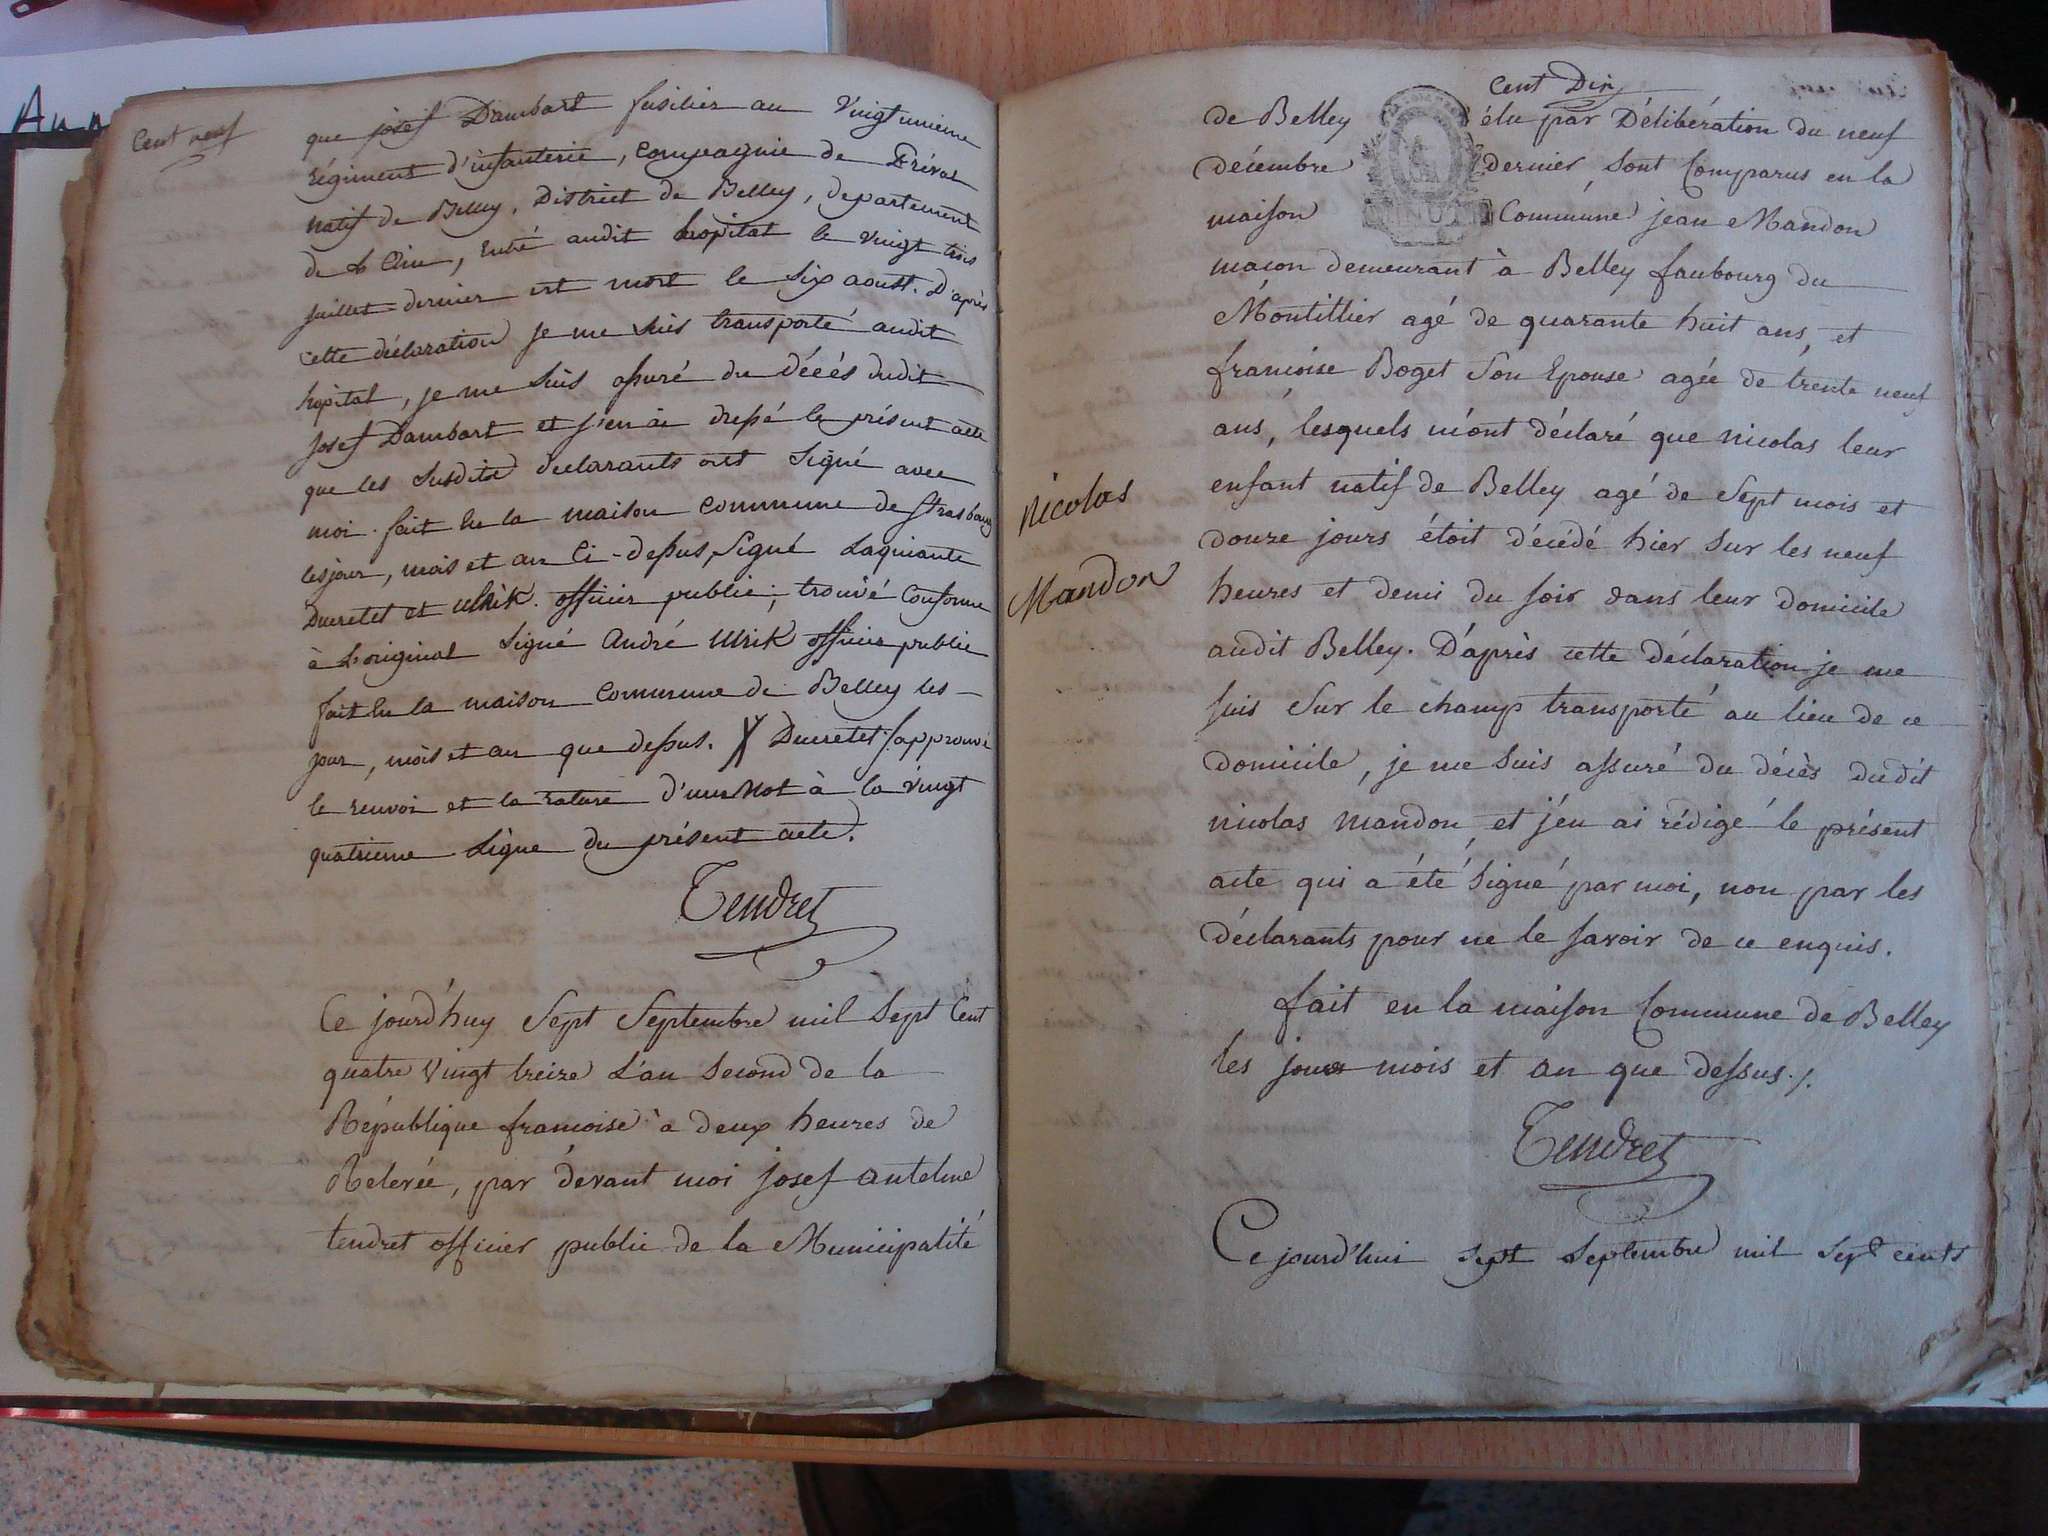 Ann
Cent neuf
que josef Dambart fusilier au Vingtunieme
régiment d'infanterie, compagnie de Préval
natif de Belley, District de Belley, departement
de L'Ain, entré audit hopital le vingt trois
juillet dernier est mort le Six aoust. D'après
cette déclaration je me suis transporté audit
hopital, je me suis assuré du décés dudit
josef Dambart et j'en ai dressé le présent acte
que les susdits declarants ont Signé avec
moi. fait En la maison commune de Strasbourg
les jour, mois et an Ci-dessus, Signé Laquiante
Ducretet et ulrik. officier public, trouvé Conforme
à L'original Signé André Ulrik officier public
fait En la maison Commune de Belley les
jour, mois et an que dessus. X Ducretet. j'approuve
le renvoi et la rature d'un Mot à la Vingt
quatrieme Ligne du présent acte.
Tendret
Ce jourd'huy Sept Septembre mil Sept Cent
quatre Vingt treize L'an Second de la
République francoise à deux heures de
Relevée, par devant moi josef antelme
tendret officier public de la Municipalité
Cent Dix
de Belley élu par Délibération du neuf
décembre dernier, sont Comparus en la
maison Commune jean Mandon
macon demeurant à Belley faubourg du
Montillier agé de quarante huit ans, et
francoise Boget Son Epouse agée de trente neuf
ans, lesquels m'ont déclaré que nicolas leur
enfant natif de Belley agé de Sept mois et
douze jours étoit décédé hier sur les neuf
heures et demi du soir dans leur domicile
audit Belley. D'après cette déclaration je me
suis Sur le champ transporté au lieu de ce
domicile, je me suis assuré du décès dudit
nicolas Mandon, et j'en ai rédigé le présent
acte qui a été Signé par moi, non par les
déclarants pour ne le savoir de ce enquis.
fait en la maison Commune de Belley
les jour mois et an que dessus./.
Tendret
Nicolas
Mandon
Ce jourd'hui sept Septembre mil sept cents